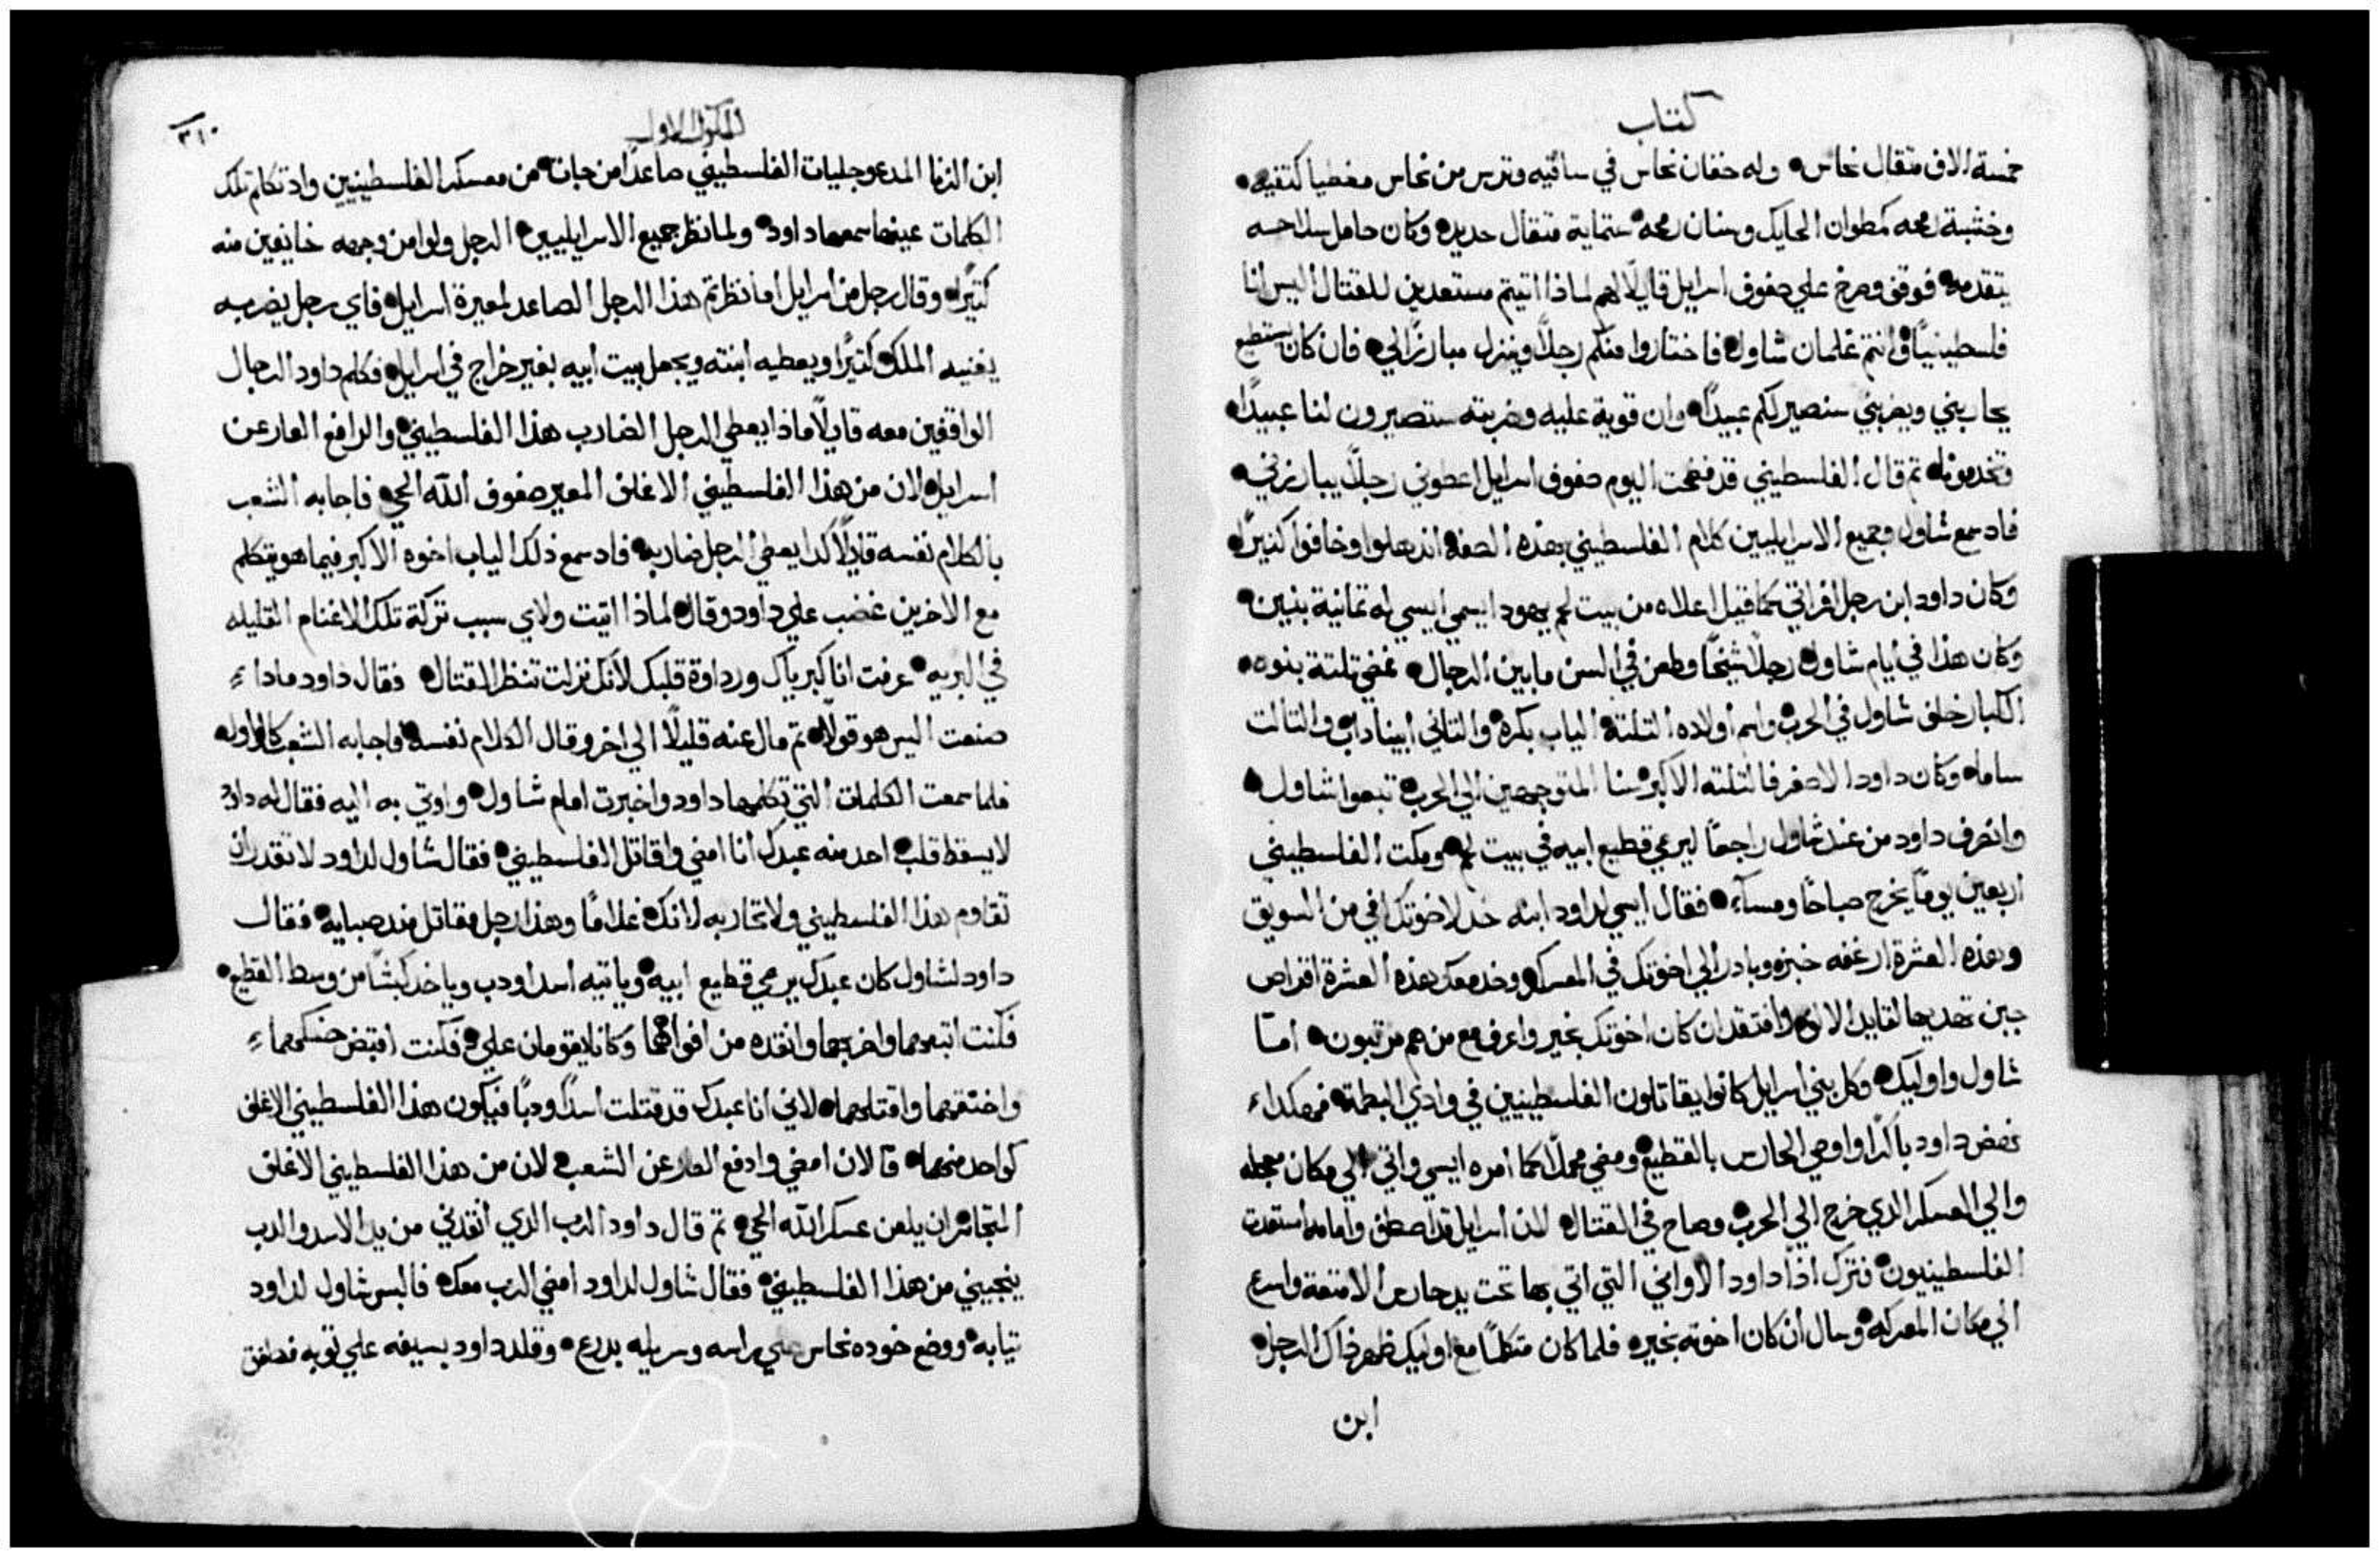 كتاب
خمسة الاف متقال نحاس وله خفان نحاس في ساقيه وترس من نحاس مغطيا كتفيه
وخشبة رمحه كمطوان الحايك وسنان رمحه ستماية متقال حديد وكان حامل سلاحه
يتقدمه فوقف وصرخ علي صفوف اسرايل قايلًا لهم لماذا اتيتم مستعدين للقتال اليس انا
فلسطينيًا وانتم غلمان شاول فاختاروا منكم رجلًا وينزل مبارزًا لي فان كان يستطيع
يحاربني ويضربني سنصير لكم عبيدًا وان قوية عليه وضربته ستصيرون لنا عبيدًا
وتخدمونا تم قال الفلسطيني قد فضحت اليوم صفوف اسرايل اعطوني رجلًا يبارزني
فاد سمع شاول وجميع الاسرايليين كلام الفلسطيني بهذه الصفة اندهلوا وخافوا كتيرًا
وكان داود ابن رجل افراتي كما قيل اعلاه من بيت لحم يهودا يسمي ايسي له تمانية بنين
وكان هذا في ايام شاول رجلًا شيخًا وطعن في السن ما بين الرجال فمضي تلتة بنوه
الكبار خلف شاول في الحرب واسم اولاده التلتة الياب بكره والتاني ابيناداب والتالت
ساما وكان داود الاصغر فالتلته الاكبر سنا المتوجهين الي الحرب تبعوا شاول
وانصرف داود من عند شاول راجعًا ليرعي قطيع ابيه في بيت لحم ومكت الفلسطيني
اربعين يومًا يخرج صباحًا ومساء فقال ايسي لداود ابنه خد لاخوتك افي من السويق
وهذه العشرة ارغفه خبز وبادر الي اخوتك في المعسكر وخد معك هذه العشرة اقراص
جبن تهديها لقايد الالف وافتقد ان كان اخوتك بخير واعرف مع من هم مرتبون امّا
شاول واوليك وكل بني اسرايل كانوا يقاتلون الفلسطينيين في وادي البطمة فهكداء
نهض داود باكرًا واوصي الحارس بالقطيع ومضي محملًا كما امره ايسي واتي الي مكان مجمله
والي العسكر الدي خرج الي الحرب وصاح في القتال لان اسرايل قد اصطف وامامه استعدت
الفلسطينيون فترك اذًا داود الاواني التي اتي بها تحت يد حارس الامتعة واسرع
الي مكان المعركه وسال ان كان اخوته بخير فلما كان متكلمًا مع اوليك ظهر ذاك الرجل
ابن
الملوك الاول
٣١٠
ابن الزنا المدعو جليات الفلسطيني صاعدًا من جات من معسكر الفلسطينيين واد تكلم تلك
الكلمات عينها سمعها داود ولما نظر جميع الاسرايليين الرجل ولوا من وجهه خايفين منه
كتيرًا وقال رجل من اسرايل اما نظرتم هذا الرجل الصاعد لمعيرة اسرايل فاي رجل يضربه
يغنيه الملك كتيرًا ويعطيه ابنته ويجعل بيت ابيه بغير خراج في اسرايل فكلم داود الرجال
الواقفين معه قايلًا ماذا يعطي الرجل الضارب هذا الفلسطيني والرافع العار عن
اسرايل لان من هذا الفلسطيني الاغلف المعير صفوف الله الحي فاجابه الشعب
بالكلام نفسه قايلًا كدا يعطي الرجل ضاربه فاد سمع ذلك الياب اخوه الاكبر فيما هو يتكلم
مع الاخرين غضب علي داود وقال لماذا اتيت ولاي سبب تركة تلك الاغنام القليله
في البريه عرفت انا كبرياك ورداوة قلبك لانك نزلت تنظر القتال فقال داود ماداء
صنعت اليس هو قولًا تم مال عنه قليلًا الي اخر وقال الكلام نفسه فاجابه الشعب كالاول
فلما سمعت الكلمات التي تكلمها داود واخبرت امام شاول واوتي به اليه فقال له داود
لا يسقط قلب احد منه عبدك انا امضي واقاتل الفلسطيني فقال شاول لداود لا تقدر ان
تقاوم هذا الفلسطيني ولا تحاربه لانك غلامًا وهذا رجل مقاتل مند صبايه فقال
داود لشاول كان عبدك يرعي قطيع ابيه وياتيه اسد او دب وياخد كبشًا من وسط القطيع
فكنت اتبعهما واضربهما وانقده من افواههما وكانا يقومان علي فكنت اقبض حنكهماء
واخنقهما واقتلهما لاني انا عبدك قد قتلت اسدًا ودبًا فيكون هذا الفلسطيني الاغلف
كواحد منهما فالان امضي وادفع العار عن الشعب لان من هذا الفلسطيني الاغلف
المتجاسر ان يلعن عسكر الله الحي تم قال داود الرب الدي انقدني من يد الاسد والدب
ينجيني من هذا الفلسطيني فقال شاول لداود امضي الرب معك فالبس شاول لداود
تيابه ووضع خوده نحاس علي راسه وسربله بدرع وقلد داود بسيفه علي توبه فطفق